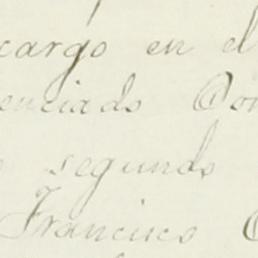 cargo en el
enciado Con
segundo
Francisco